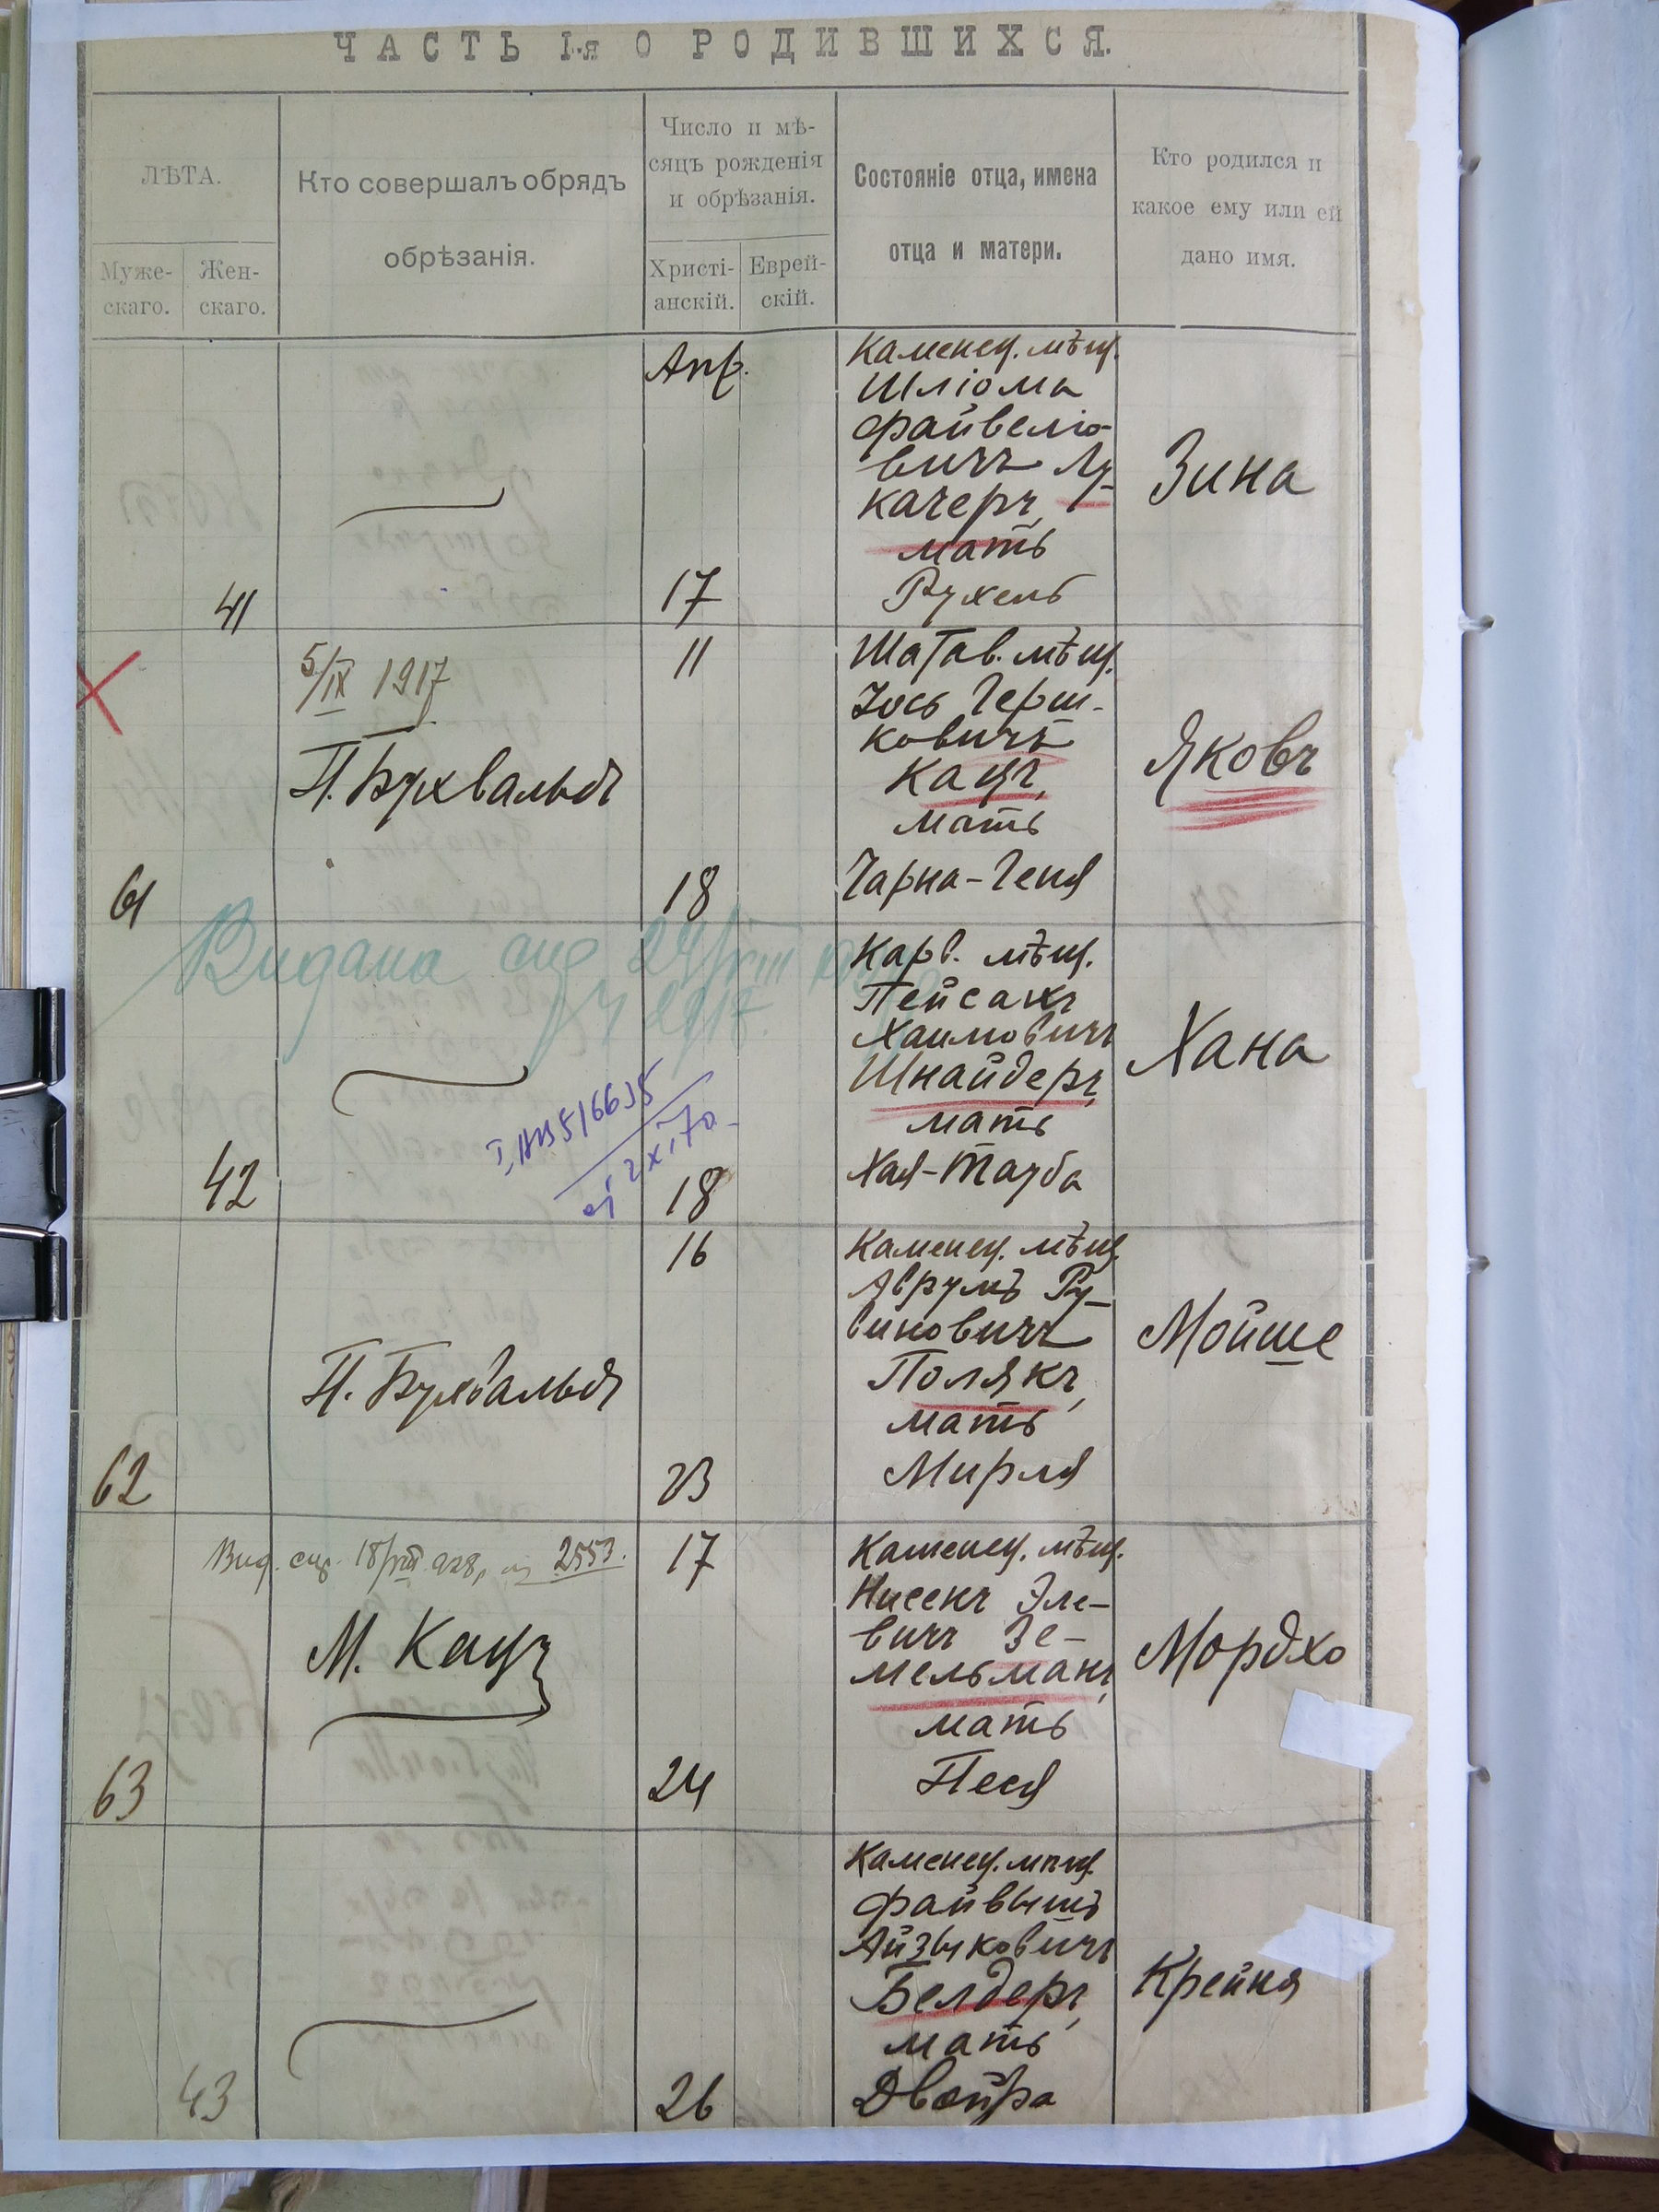 ЧАСТЬ I-я О РОДИВШИХСЯ.
ЛѢТА.
Муже-
скаго.
Жен-
скаго.
Кто совершалъ обрядъ
обрѣзанія.
Число и мѣ-
сяцъ рожденія
и обрѣзанія.
Христі-
анскій.
Еврей-
скій.
Состояніе отца, имена
отца и матери.
Кто родился и
какое ему или ей
дано имя.
41
Апр.
17
Каменец. мѣщ.
Шліома
Файвелю-
вичъ Лу-
качеръ,
мать
Рухель
Зина
61
5/IX 1917
П. Бухвальдъ
11
18
Шатав. мѣщ.
Іось Герш-
ковичъ
Кацъ,
мать
Чарна-Геня
Яковъ
Видана
42
18
Карв. мѣщ.
Пейсахъ
Хаимовичъ
Шнайдеръ,
мать
Хая-Тауба
Хана
62
П. Бухвальдъ
16
23
Каменец. мѣщ.
Аврумъ Ру-
виновичъ
Полякъ,
мать
Мирля
Мойше
63
Вид. 18/VIII 928, 2553.
М. Кацъ
17
24
Каменец. мѣщ.
Нисенъ Эле-
вичъ Зе-
мельманъ,
мать
Песя
Мордхо
43
26
Каменец. мѣщ.
Файвышъ
Айзыковичъ
Белдеръ,
мать
Двойра
Крейня